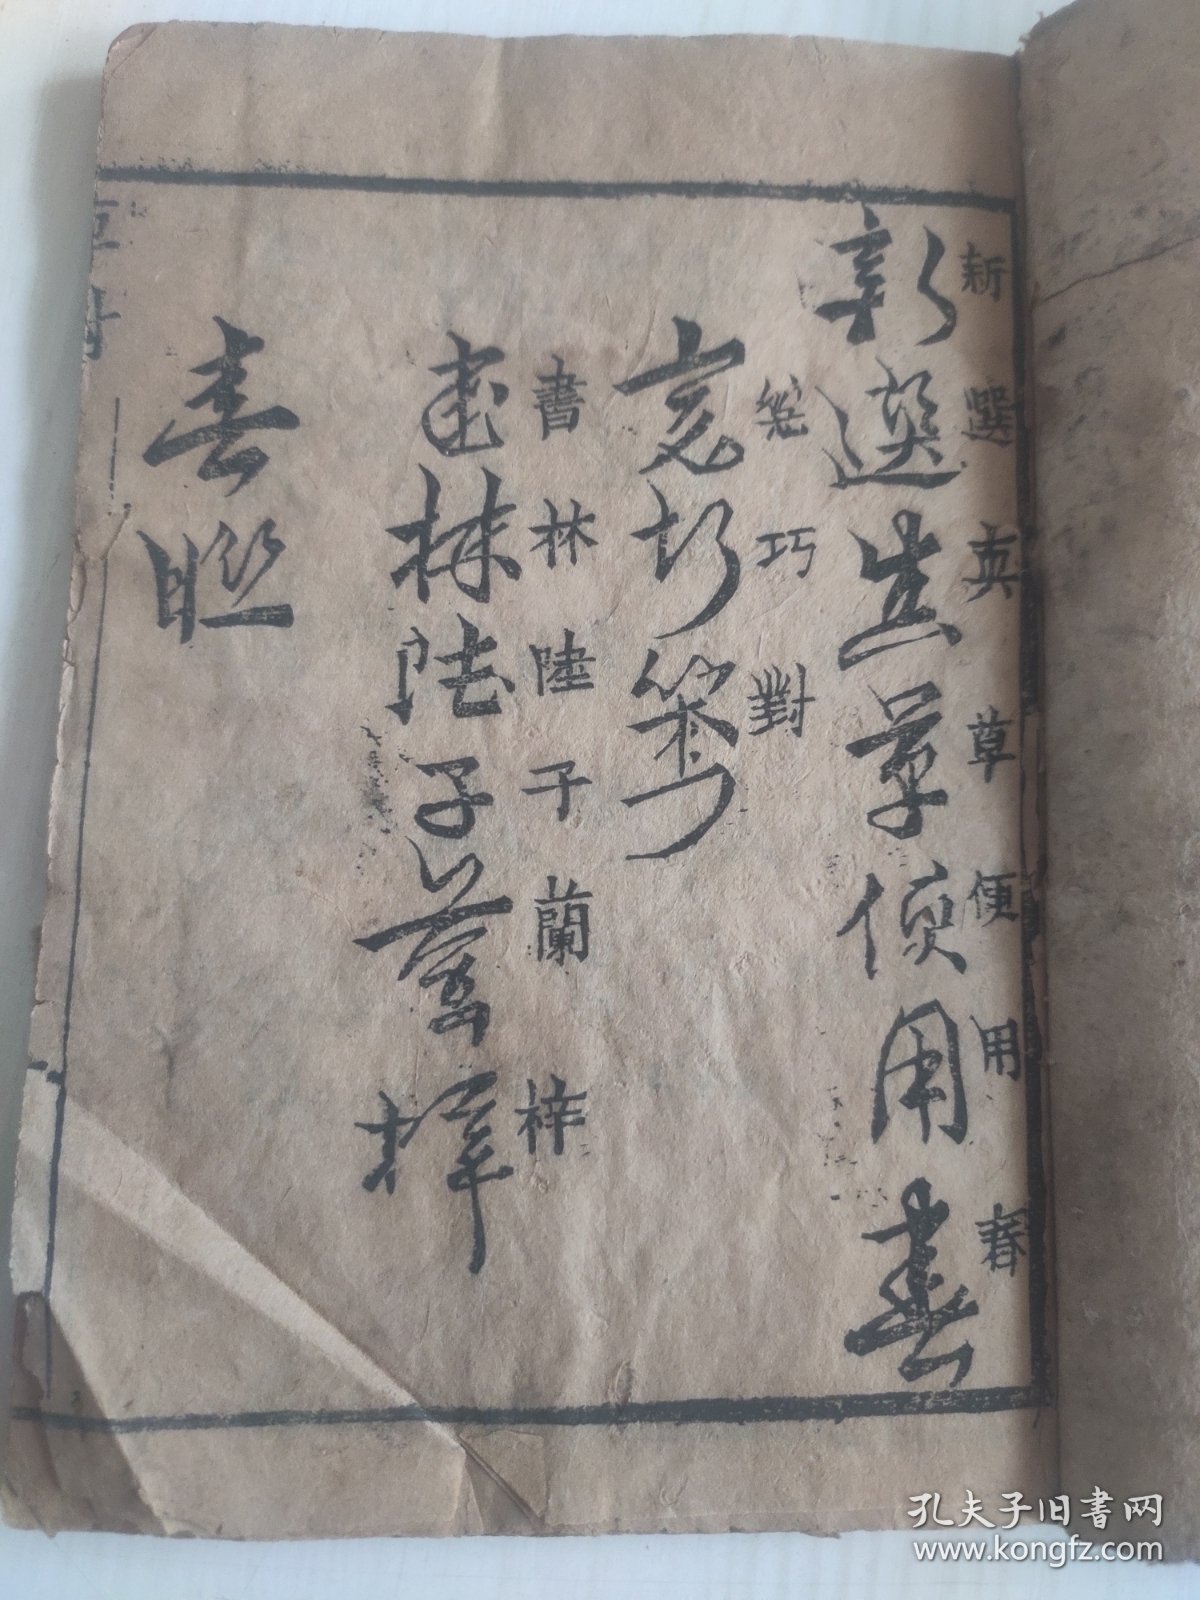 新選真草便用春
新選真草便用春
筆巧對
書林陸子蘭梓
書林陸子蘭梓
春聯
孔夫子旧書网
www.kongfz.com